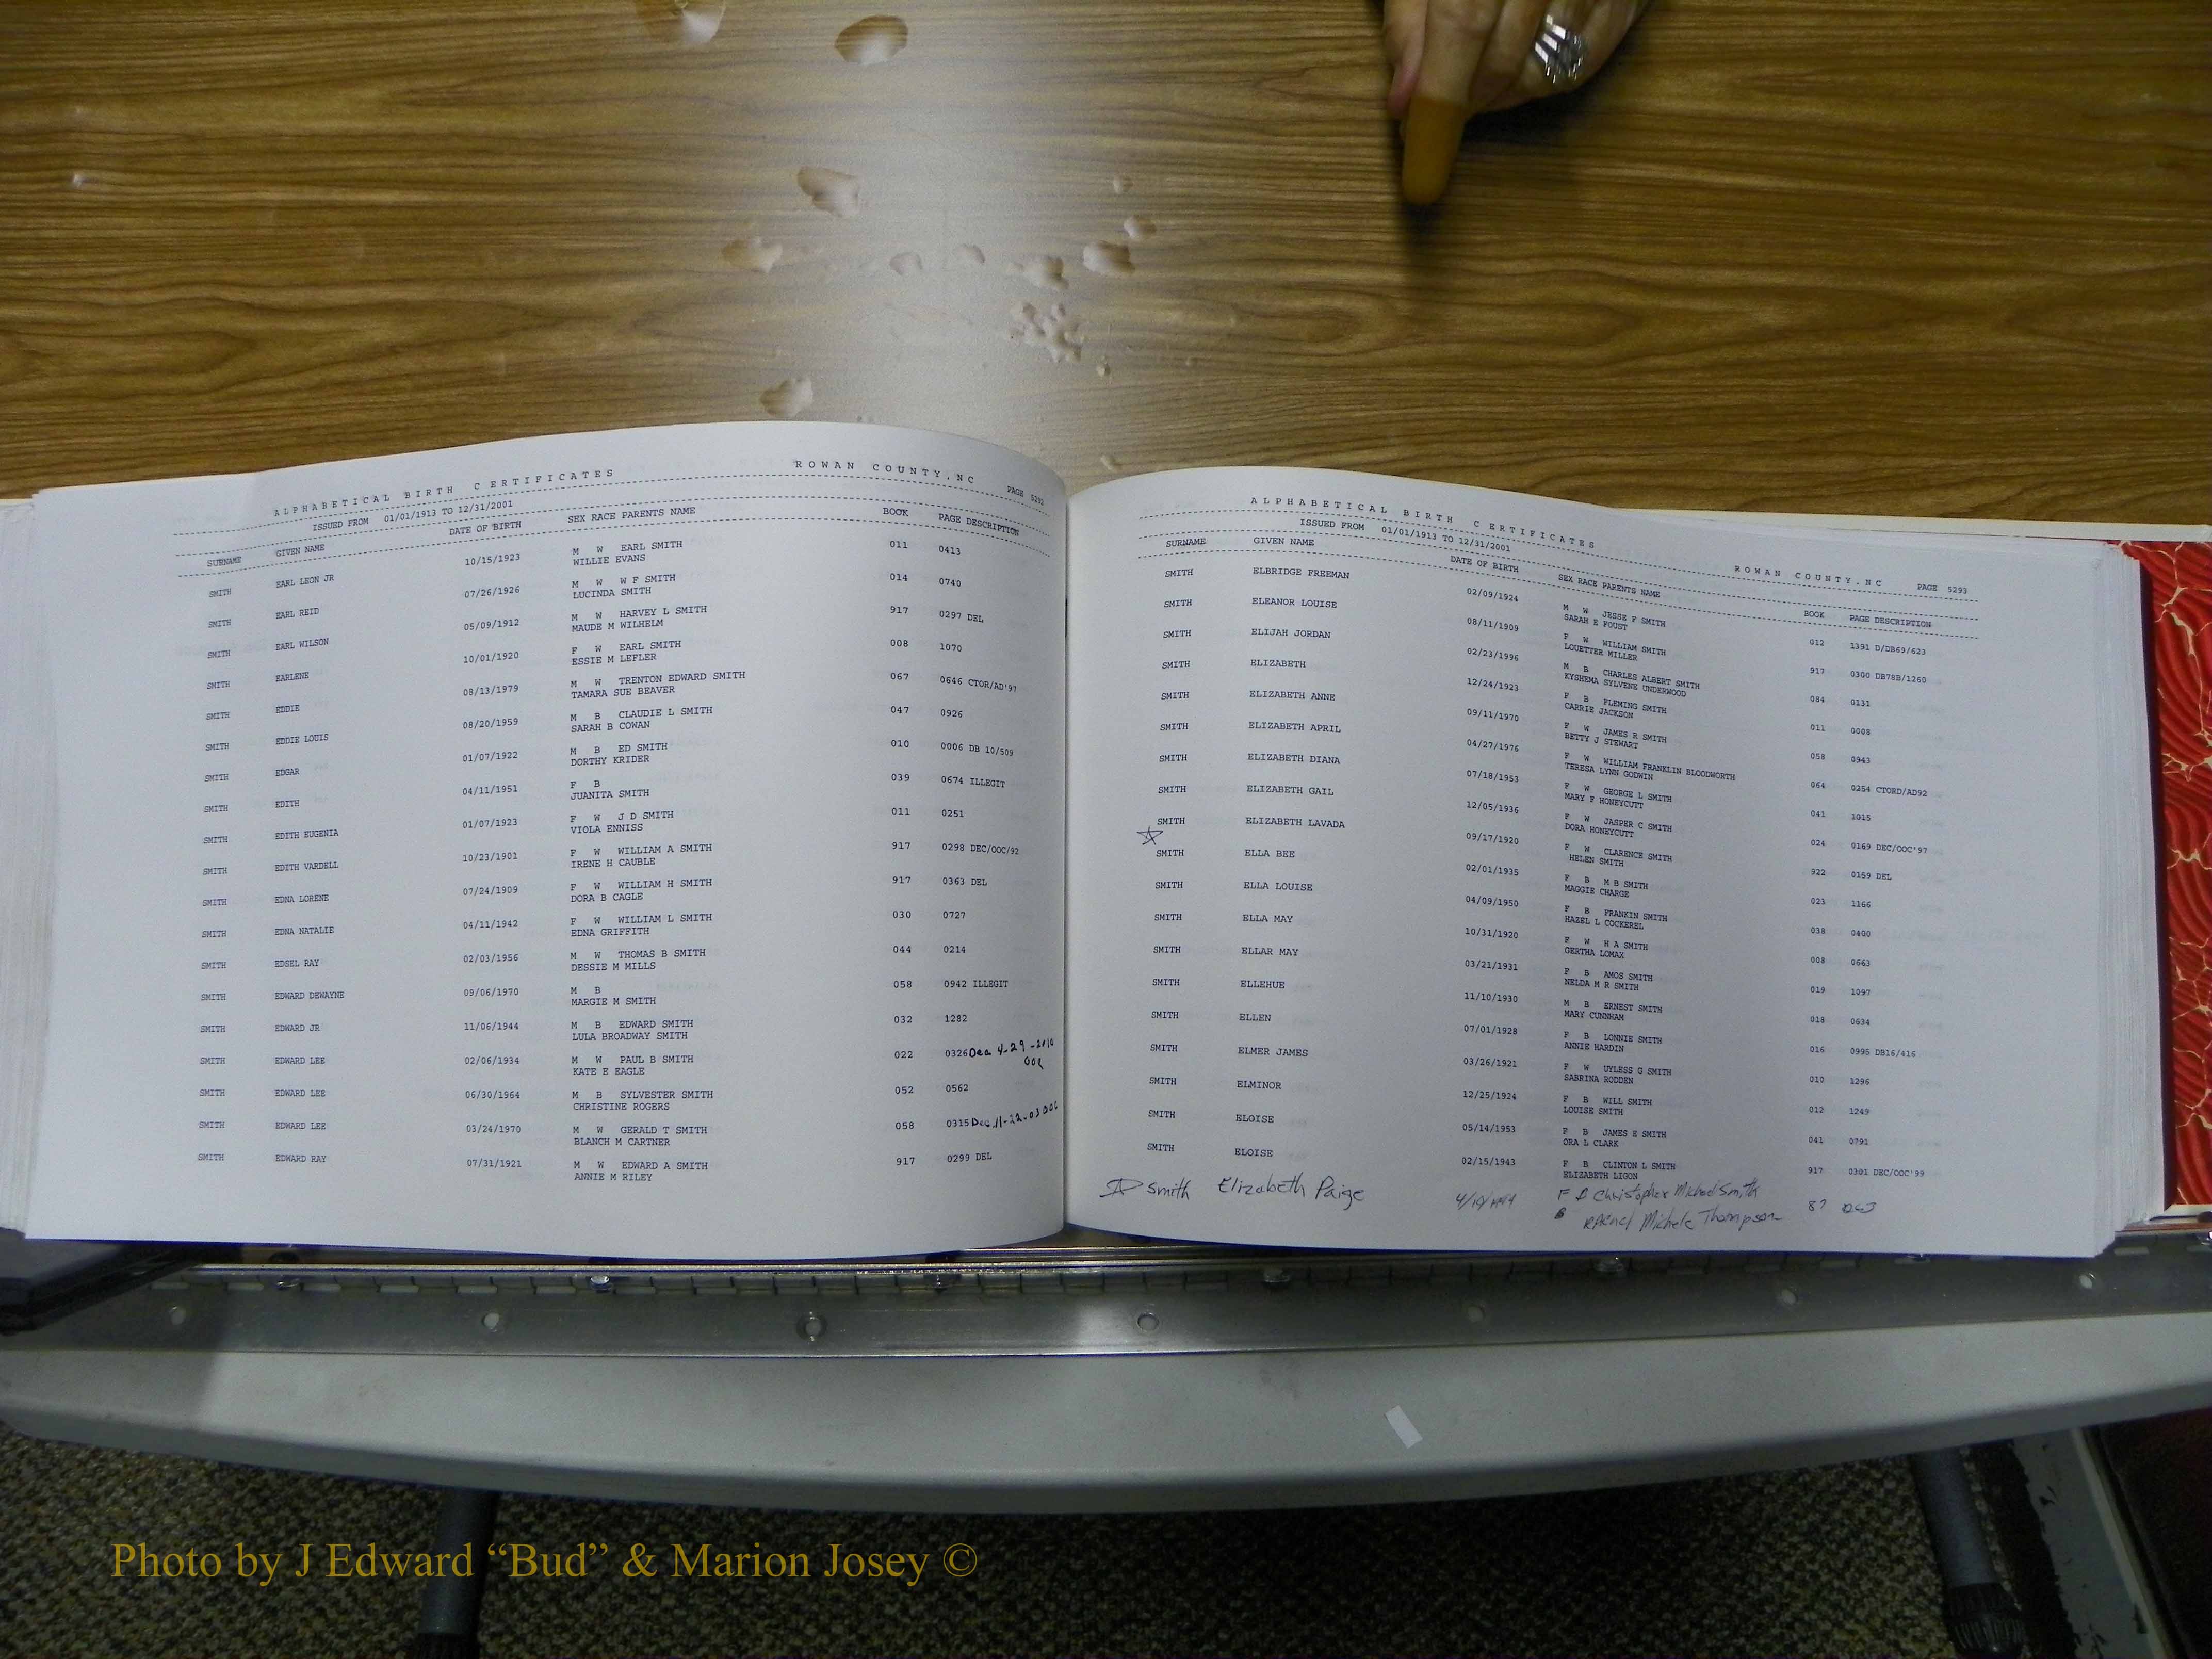 ALPHABETICAL BIRTH CERTIFICATES ROWAN COUNTY,NC PAGE 5292
ISSUED FROM 01/01/1913 TO 12/31/2001
SURNAME GIVEN NAME DATE OF BIRTH SEX RACE PARENTS NAME BOOK PAGE DESCRIPTION
SMITH EARL LEON JR 10/15/1923 M W EARL SMITH 011 0413
WILLIE EVANS
SMITH EARL REID 07/26/1926 M W W F SMITH 014 0740
LUCINDA SMITH
SMITH EARL WILSON 05/09/1912 M W HARVEY L SMITH 917 0297 DEL
MAUDE M WILHELM
SMITH EARLENE 10/01/1920 F W EARL SMITH 008 1070
ESSIE M LEFLER
SMITH EDDIE 08/13/1979 M W TRENTON EDWARD SMITH 067 0646 CTOR/AD'97
TAMARA SUE BEAVER
SMITH EDDIE LOUIS 08/20/1959 M B CLAUDIE L SMITH 047 0926
SARAH B COWAN
SMITH EDGAR 01/07/1922 M B ED SMITH 010 0006 DB 10/509
DORTHY KRIDER
SMITH EDITH 04/11/1951 F B 039 0674 ILLEGIT
JUANITA SMITH
SMITH EDITH EUGENIA 01/07/1923 F W J D SMITH 011 0251
VIOLA ENNISS
SMITH EDITH VARDELL 10/23/1901 F W WILLIAM A SMITH 917 0298 DEC/OOC/92
IRENE H CAUBLE
SMITH EDNA LORENE 07/24/1909 F W WILLIAM H SMITH 917 0363 DEL
DORA B CAGLE
SMITH EDNA NATALIE 04/11/1942 F W WILLIAM L SMITH 030 0727
EDNA GRIFFITH
SMITH EDSEL RAY 02/03/1956 M W THOMAS B SMITH 044 0214
DESSIE M MILLS
SMITH EDWARD DEWAYNE 09/06/1970 M B 058 0942 ILLEGIT
MARGIE M SMITH
SMITH EDWARD JR 11/06/1944 M B EDWARD SMITH 032 1282
LULA BROADWAY SMITH
SMITH EDWARD LEE 02/06/1934 M W PAUL B SMITH 022 0326 Dec 4-29-2010
KATE E EAGLE OOC
SMITH EDWARD LEE 06/30/1964 M B SYLVESTER SMITH 052 0562
CHRISTINE ROGERS
SMITH EDWARD LEE 03/24/1970 M W GERALD T SMITH 058 0315 Dec 11-22-03 OOC
BLANCH M CARTNER
SMITH EDWARD RAY 07/31/1921 M W EDWARD A SMITH 917 0299 DEL
ANNIE M RILEY
ALPHABETICAL BIRTH CERTIFICATES ROWAN COUNTY,NC PAGE 5293
ISSUED FROM 01/01/1913 TO 12/31/2001
SURNAME GIVEN NAME DATE OF BIRTH SEX RACE PARENTS NAME BOOK PAGE DESCRIPTION
SMITH ELBRIDGE FREEMAN 02/09/1924 M W JESSE F SMITH 012 1391 D/DB69/623
SARAH E FOUST
SMITH ELEANOR LOUISE 08/11/1909 F W WILLIAM SMITH 917 0300 DB78B/1260
LOUETTER MILLER
SMITH ELIJAH JORDAN 02/23/1996 M B CHARLES ALBERT SMITH 084 0131
KYSHEMA SYLVENE UNDERWOOD
SMITH ELIZABETH 12/24/1923 F B FLEMING SMITH 011 0008
CARRIE JACKSON
SMITH ELIZABETH ANNE 09/11/1970 F W JAMES R SMITH 058 0943
BETTY J STEWART
SMITH ELIZABETH APRIL 04/27/1976 F W WILLIAM FRANKLIN BLOODWORTH 064 0254 CTORD/AD92
TERESA LYNN GODWIN
SMITH ELIZABETH DIANA 07/18/1953 F W GEORGE L SMITH 041 1015
MARY F HONEYCUTT
SMITH ELIZABETH GAIL 12/05/1936 F W JASPER C SMITH 024 0169 DEC/OOC'97
DORA HONEYCUTT
SMITH ELIZABETH LAVADA 09/17/1920 F W CLARENCE SMITH 922 0159 DEL
HELEN SMITH
SMITH ELLA BEE 02/01/1935 F B M B SMITH 023 1166
MAGGIE CHARGE
SMITH ELLA LOUISE 04/09/1950 F B FRANKIN SMITH 038 0400
HAZEL L COCKEREL
SMITH ELLA MAY 10/31/1920 F W H A SMITH 008 0663
GERTHA LOMAX
SMITH ELLAR MAY 03/21/1931 F B AMOS SMITH 019 1097
NELDA M R SMITH
SMITH ELLEHUE 11/10/1930 M B ERNEST SMITH 018 0634
MARY CUNNHAM
SMITH ELLEN 07/01/1928 F B LONNIE SMITH 016 0995 DB16/416
ANNIE HARDIN
SMITH ELMER JAMES 03/26/1921 F W UYLESS G SMITH 010 1296
SABRINA RODDEN
SMITH ELMINOR 12/25/1924 F B WILL SMITH 012 1249
LOUISE SMITH
SMITH ELOISE 05/14/1953 F B JAMES E SMITH 041 0791
ORA L CLARK
SMITH ELOISE 02/15/1943 F B CLINTON L SMITH 917 0301 DEC/OOC'99
ELIZABETH LIGON
Smith Elizabeth Paige F Christopher Michael Smith 87
B Rachel Michele Thompson
Photo by J Edward “Bud” & Marion Josey ©